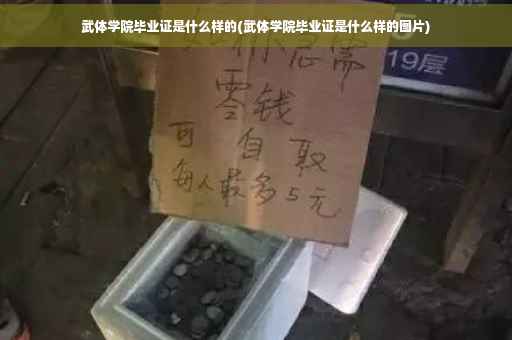 武体学院毕业证是什么样的(武体学院毕业证是什么样的图片)
你急需
零钱
可自取
每人最多5元
19层